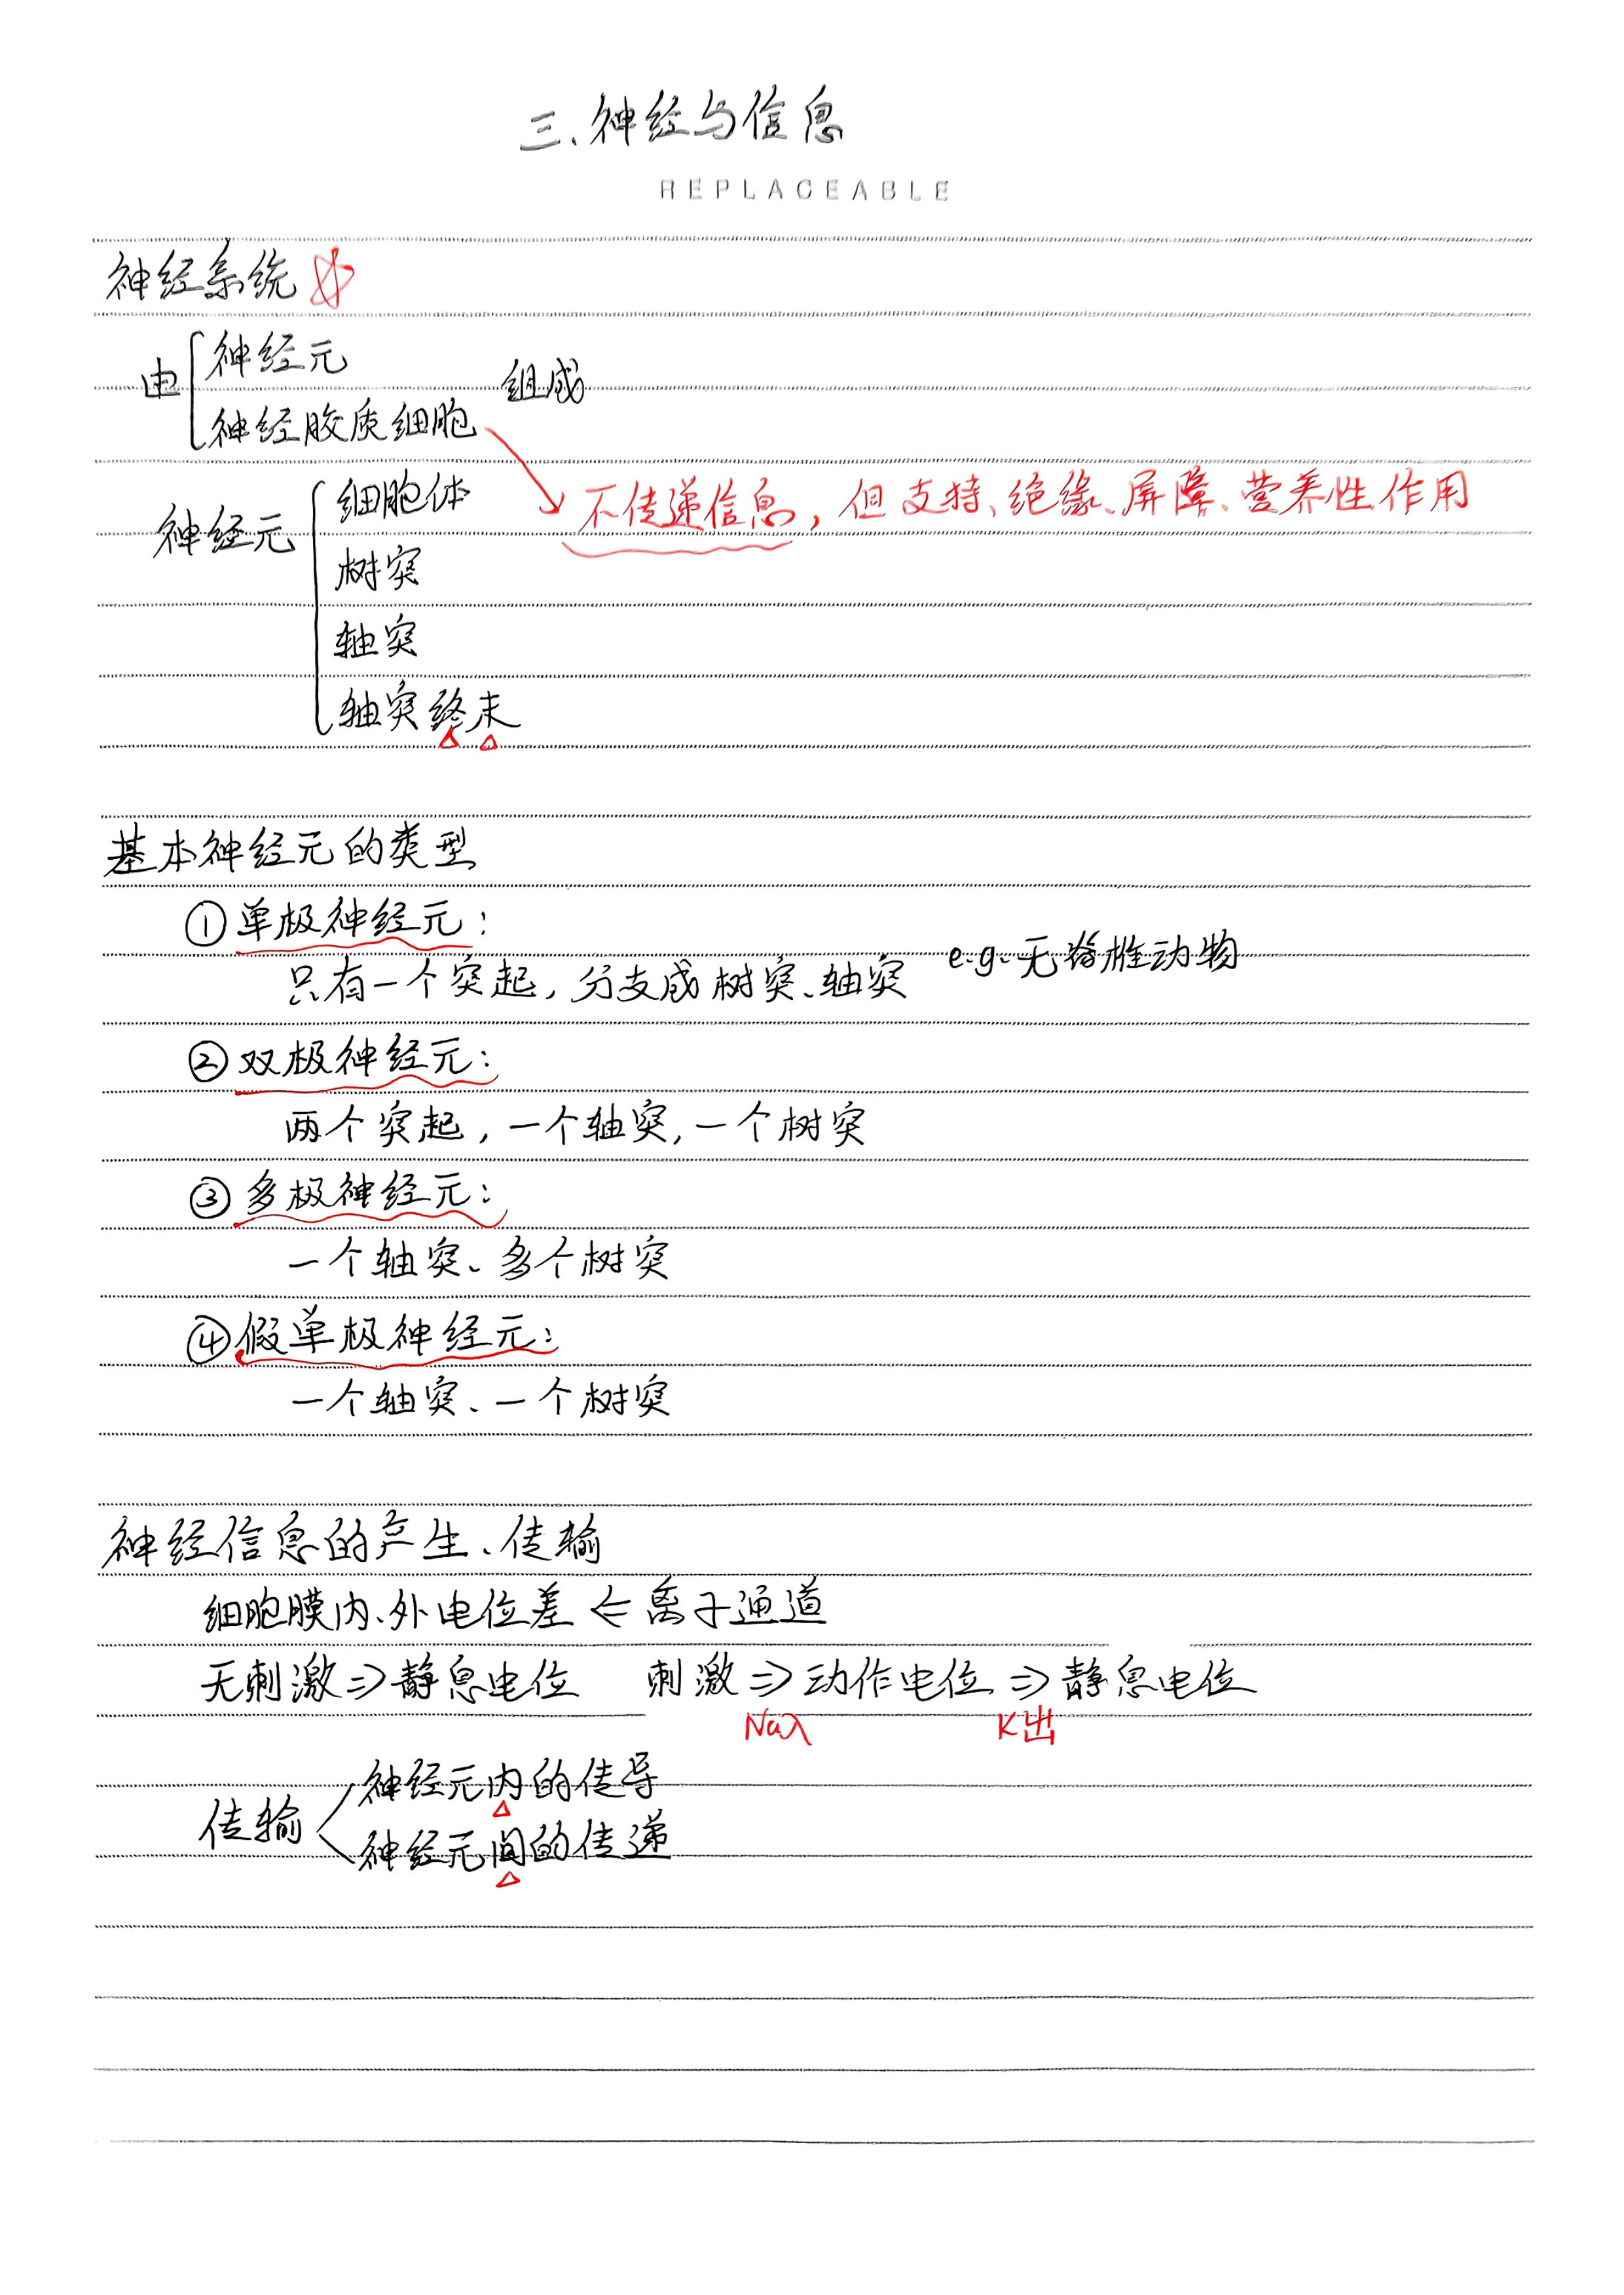 三、神经与信息
REPLACEABLE
神经系统
由 神经元 组成
神经胶质细胞
不传递信息，但支持、绝缘、屏障、营养性作用
神经元 细胞体
树突
轴突
轴突终末
基本神经元的类型
①单极神经元：
只有一个突起，分支成树突、轴突 e.g.无脊椎动物
②双极神经元：
两个突起，一个轴突，一个树突
③多极神经元：
一个轴突、多个树突
④假单极神经元：
一个轴突、一个树突
神经信息的产生、传输
细胞膜内、外电位差⇐离子通道
无刺激⇒静息电位 刺激⇒动作电位⇒静息电位
Na入 K出
传输 神经元内的传导
神经元间的传递